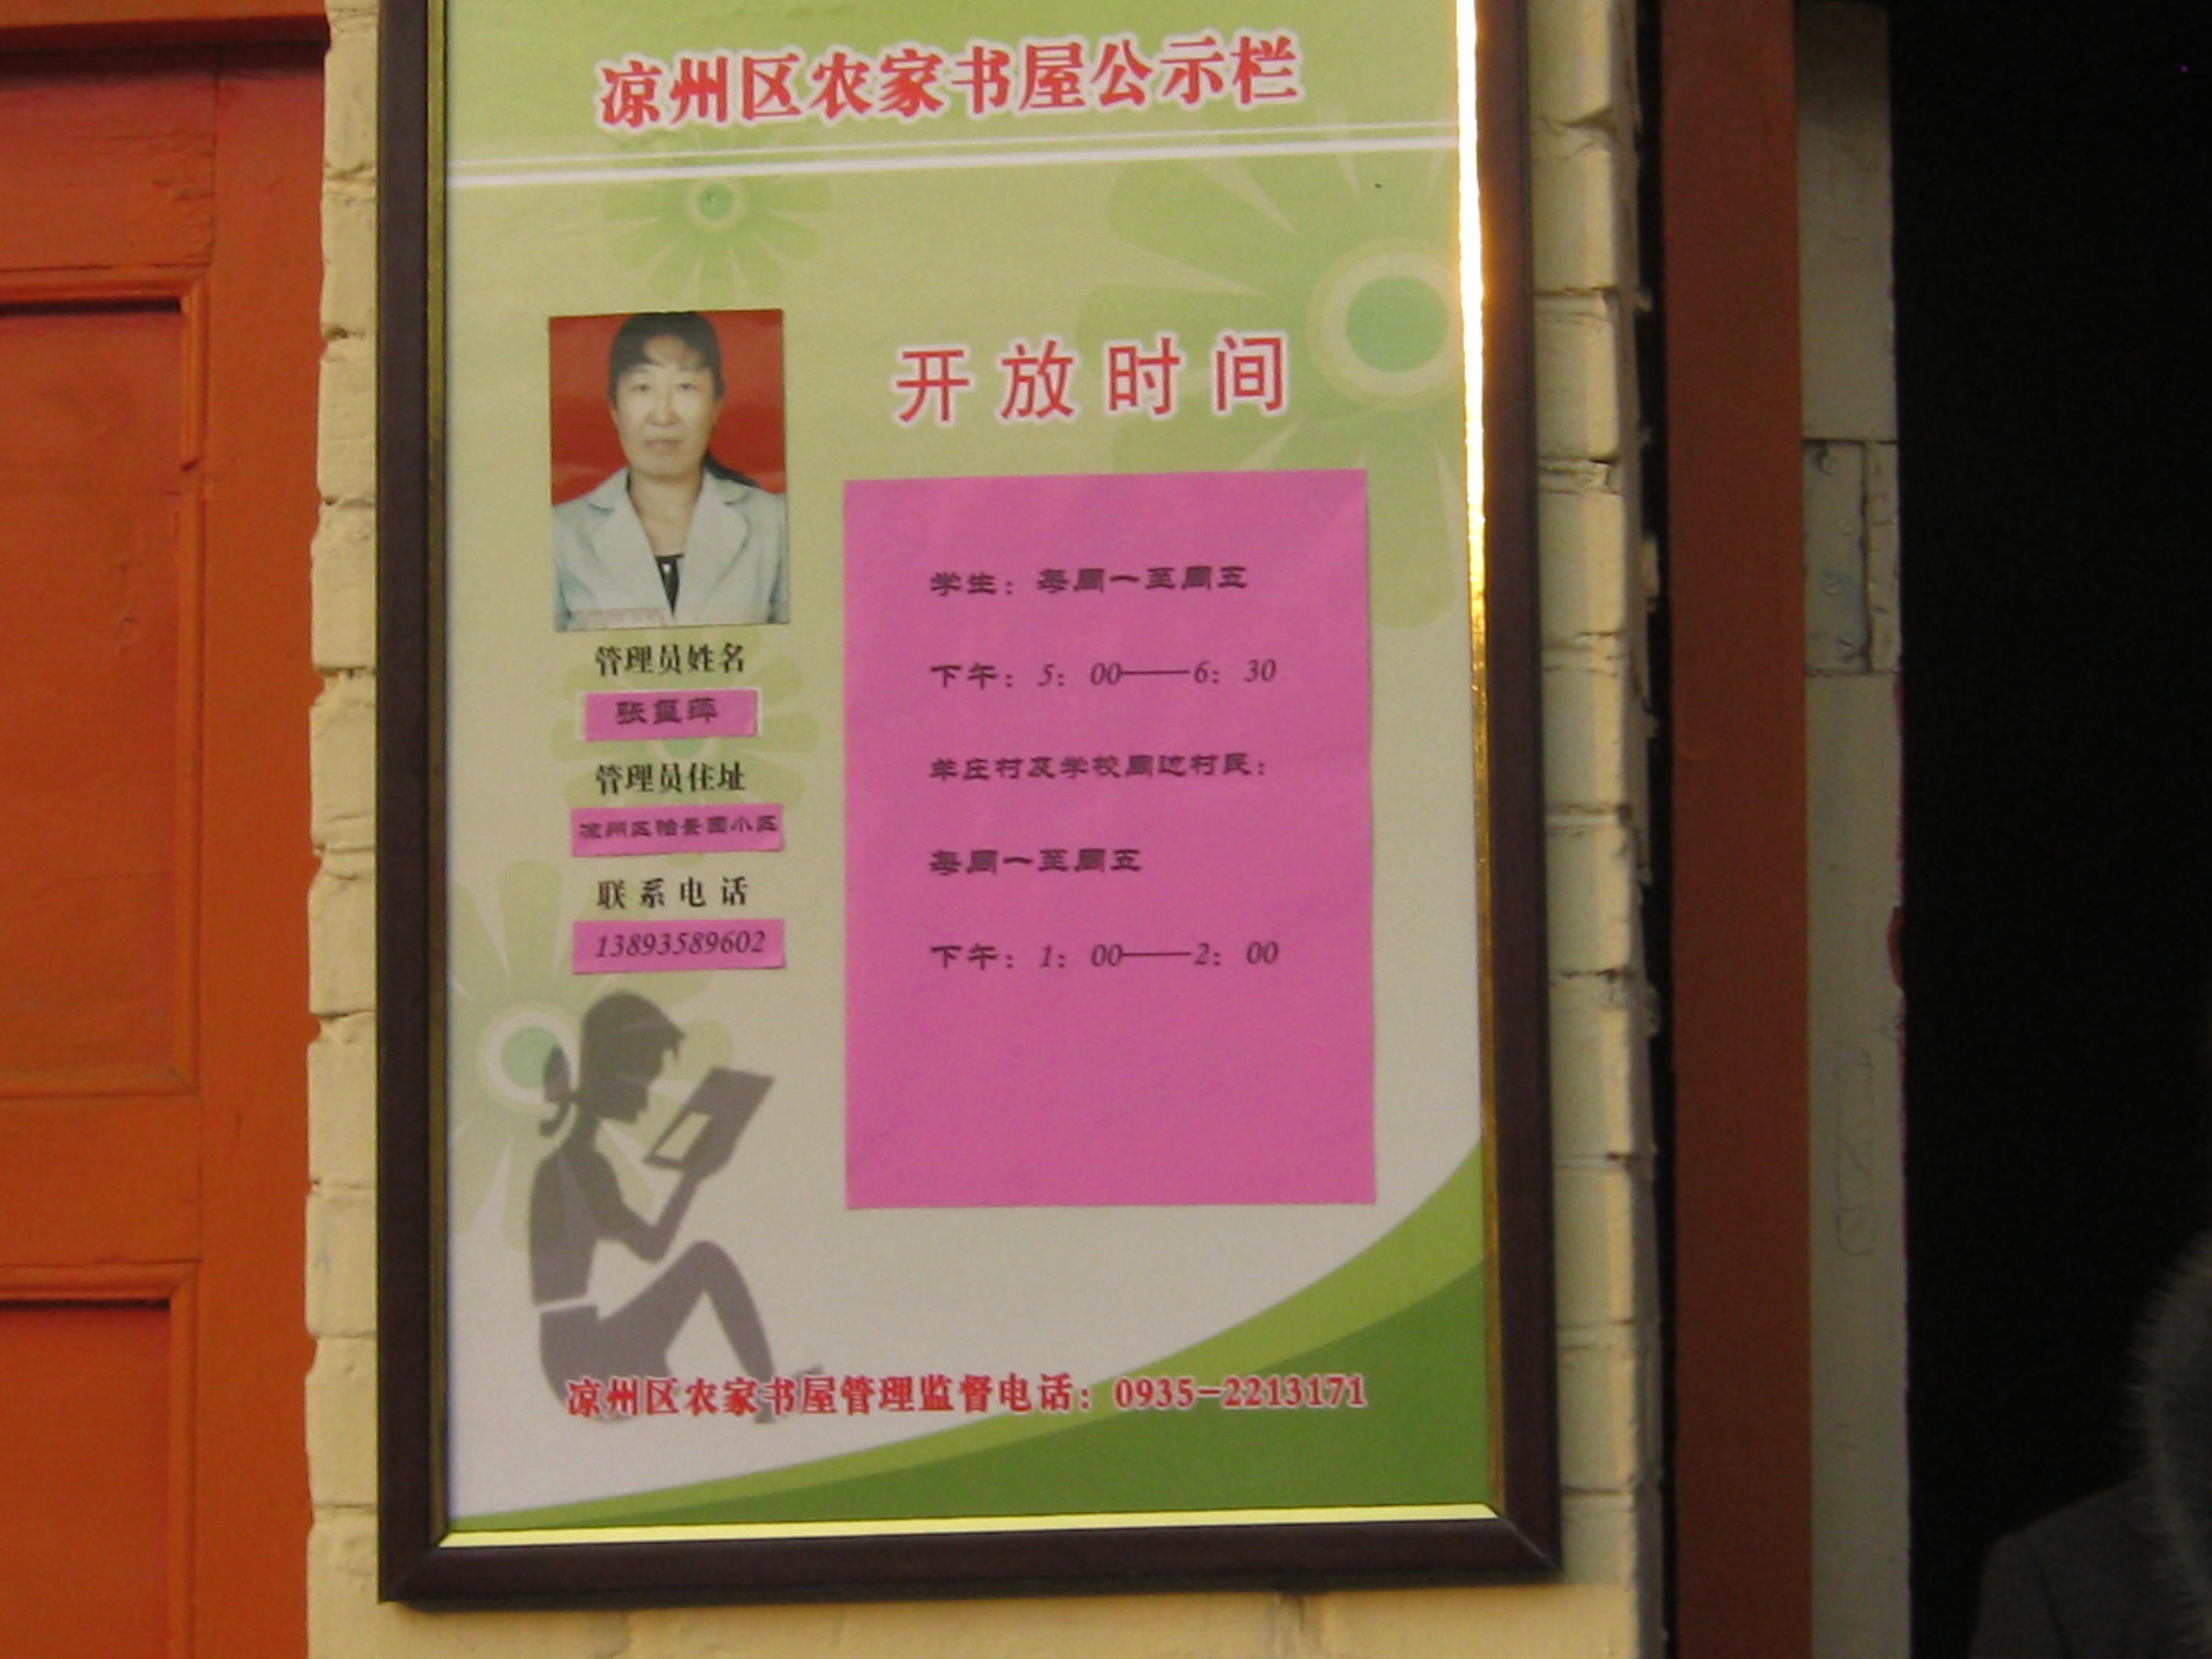 凉州区农家书屋公示栏
开放时间
管理员姓名
管理员住址
凉州区怡景园小区
联系电话
13893589602
学生：每周一至周五
下午：5：00——6：30
羊庄村及学校周边村民：
每周一至周五
下午：1：00——2：00
凉州区农家书屋管理监督电话：0935-2213171